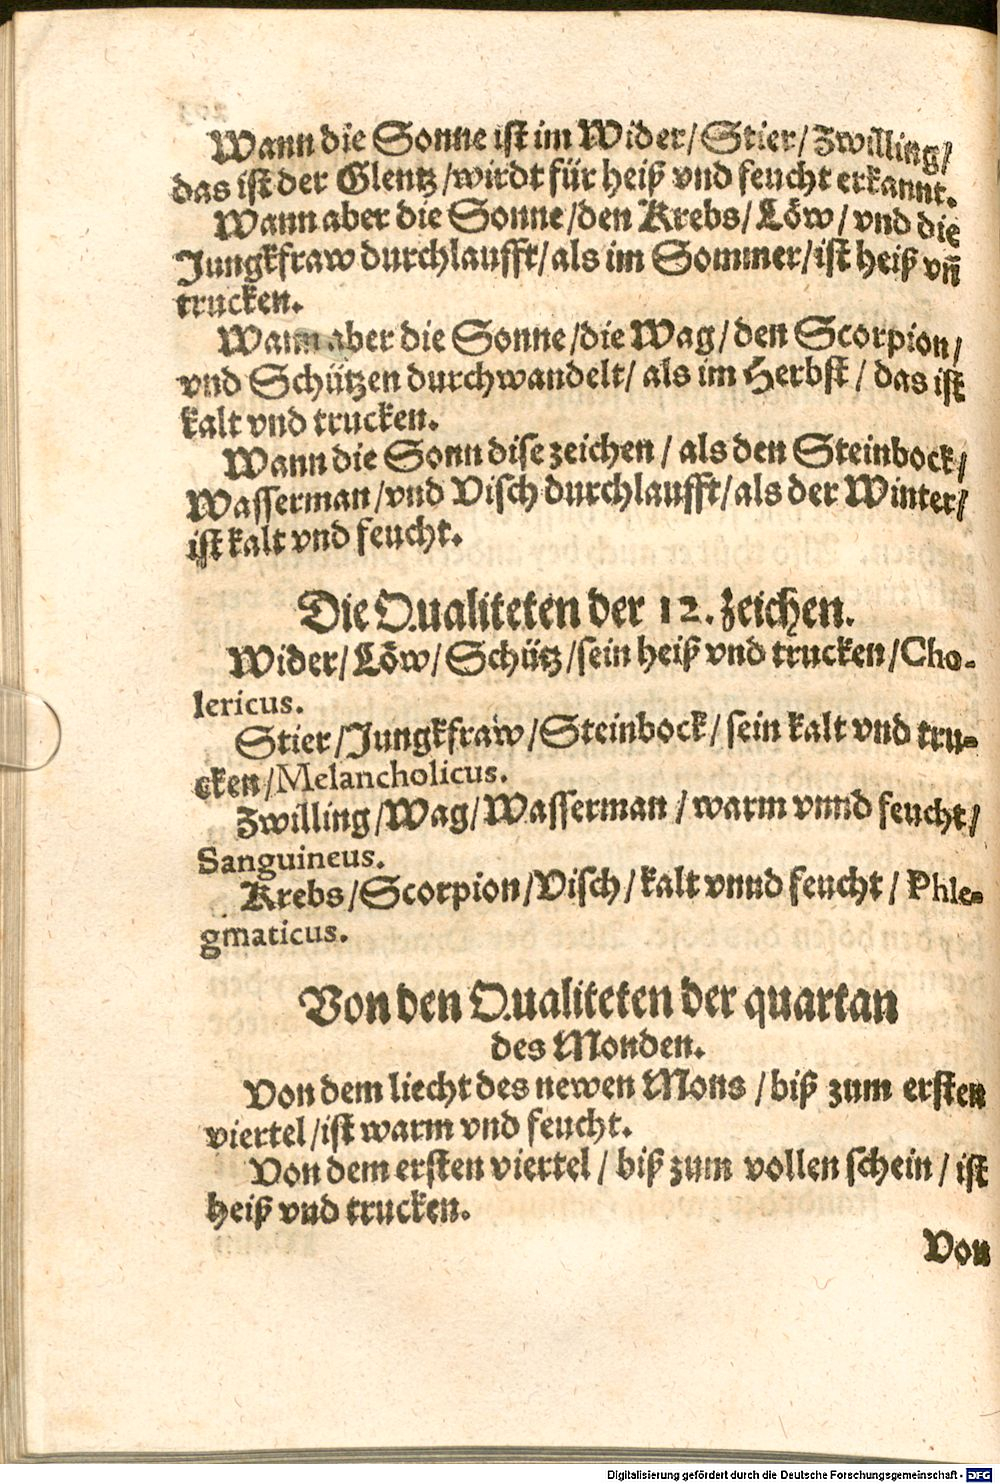 Wann die Sonne ist im Wider/ Stier/ Zwilling/
das ist der Glentz/wirdt für heiß vnd feucht erkannt.
Wann aber die Sonne/den Krebs/ Löw/ vnd die
Jungkfraw durchlaufft/als im Sommer/ist heiß vñ
trucken.
Wann aber die Sonne/die Wag/den Scorpion/
vnd Schützen durchwandelt/ als im Herbst/ das ist
kalt vnd trucken.
Wann die Sonn dise zeichen/ als den Steinbock/
Wasserman/vnd Visch durchlaufft/als der Winter/
ist kalt vnd feucht.
Die Qualiteten der 12. zeichen.
Wider/ Löw/ Schütz/sein heiß vnd trucken/Cho-
lericus.
Stier/Jungkfraw/Steinbock/ sein kalt vnd tru-
cken/Melancholicus.
Zwilling/Wag/Wasserman/ warm vnnd feucht/
Sanguineus.
Krebs/Scorpion/Visch/kalt vnnd feucht/ Phle-
gmaticus.
Von den Qualiteten der quartan
des Monden.
Von dem liecht des newen Mons/biß zum ersten
viertel/ist warm vnd feucht.
Von dem ersten viertel/ biß zum vollen schein/ ist
heiß vnd trucken.
Von
Digitalisierung gefördert durch die Deutsche Forschungsgemeinschaft - DFG